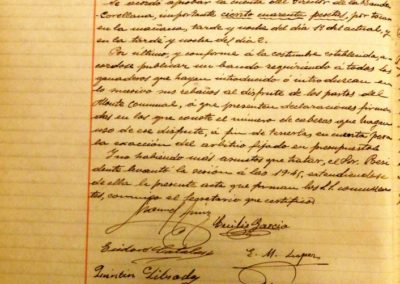 Se acordó aprobar la cuenta del Director de la Banda
Corellana, importante ciento cuarenta pesetas, por tocar
en la mañana, tarde y noche del día 1º del actual, y
en la tarde y noche del día 2.
Por último, y conforme a la costumbre establecida, a-
cordose publicar un bando requiriendo á todos los
ganaderos que hayan introducido ó introduzcan en
lo sucesivo sus rebaños al disfrute de los pastos del
Monte Comunal, á que presenten declaraciones firma-
das en los que conste el número de cabezas que hagan
uso de ese disfrute, á fin de tenerlas en cuenta para
la exacción del arbitrio fijado en presupuesto.
Y no habiendo mas asuntos que tratar, el Sr. Presi-
dente levantó la sesión á las 19'45, extendiendose
de ella la presente acta que firman los S.S. concurren-
tes, conmigo el Secretario que certifico.
Emilio Garcia
E. M.
Quintin